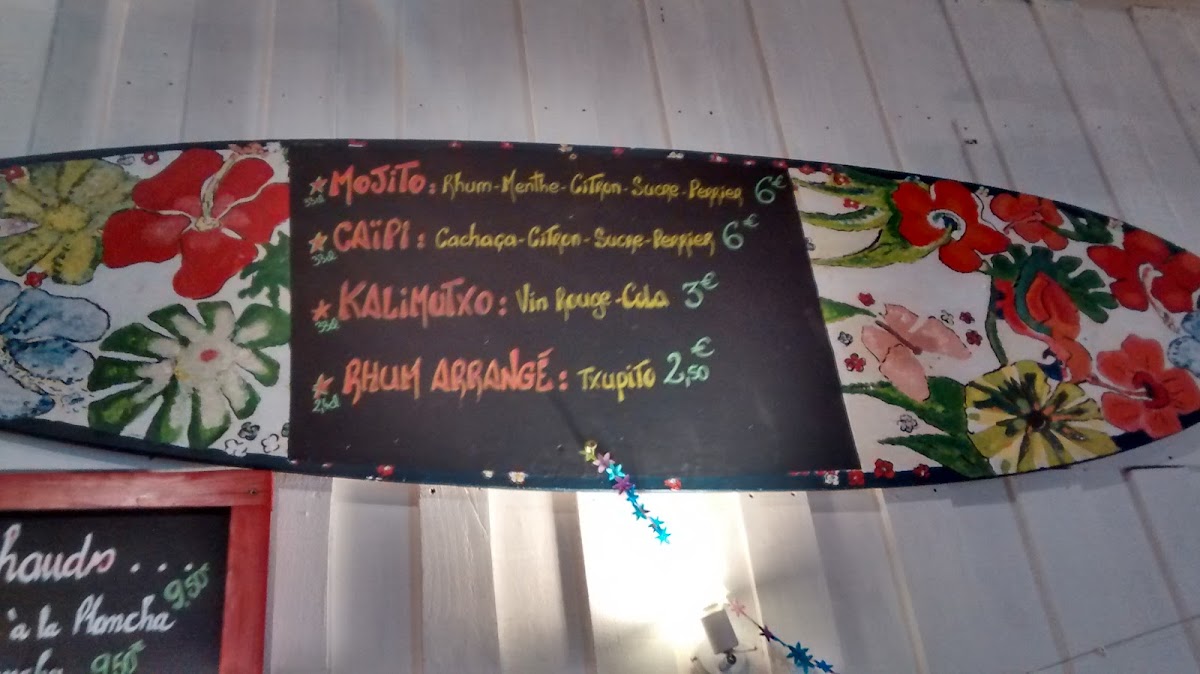 MOJITO : Rhum-Menthe-Citron-Sucre-Perrier 6€
33cl
CAÏPI : Cachaça-Citron-Sucre-Perrier 6€
33cl
KALIMUTXO : Vin Rouge-Cola 3€
33cl
RHUM ARRANGÉ : Txupito 2,50€
hauds ...
à la Plancha 9,50€
9,50